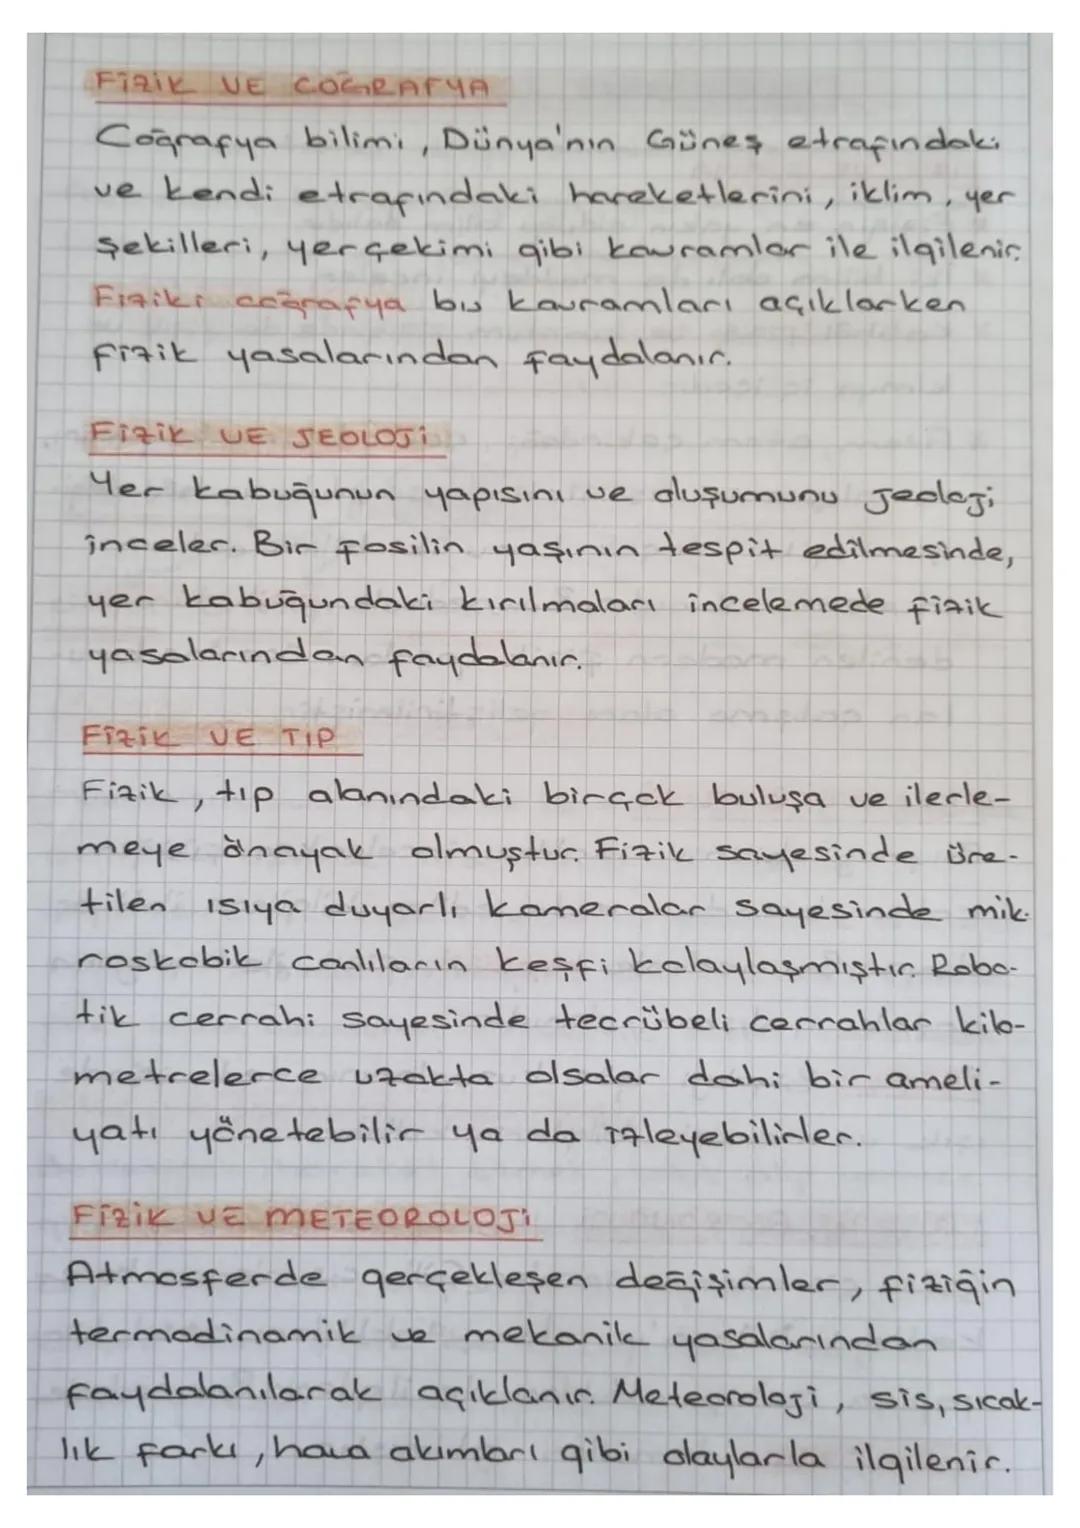 FİZİK VE COĞRAFYA
Coğrafya bilimi, Dünya'nın Güneş etrafındaki
ve kendi etrafındaki hareketlerini, iklim, yer
şekilleri, yer çekimi gibi kavramlar ile ilgilenir.
Fiziki coğrafya bu kavramları açıklarken
fizik yasalarından faydalanır.
FİZİK VE JEOLOJİ
Yer kabuğunun yapısını ve oluşumunu jeoloji
inceler. Bir fosilin yaşının tespit edilmesinde,
yer kabuğundaki kırılmaları incelemede fizik
yasalarından faydalanır.
FİZİK VE TIP
Fizik, tıp alanındaki birçok buluşa ve ilerle-
meye önayak olmuştur. Fizik sayesinde üre-
tilen ısıya duyarlı kameralar sayesinde mik-
roskobik canlıların keşfi kolaylaşmıştır. Robo-
tik cerrahi sayesinde tecrübeli cerrahlar kilo-
metrelerce uzakta olsalar dahi bir ameli-
yatı yönetebilir ya da izleyebilirler.
FİZİK VE METEOROLOJİ
Atmosferde gerçekleşen değişimler, fiziğin
termodinamik ve mekanik yasalarından
faydalanılarak açıklanır. Meteoroloji, sis, sıcak-
lık farkı, hava akımları gibi olaylarla ilgilenir.